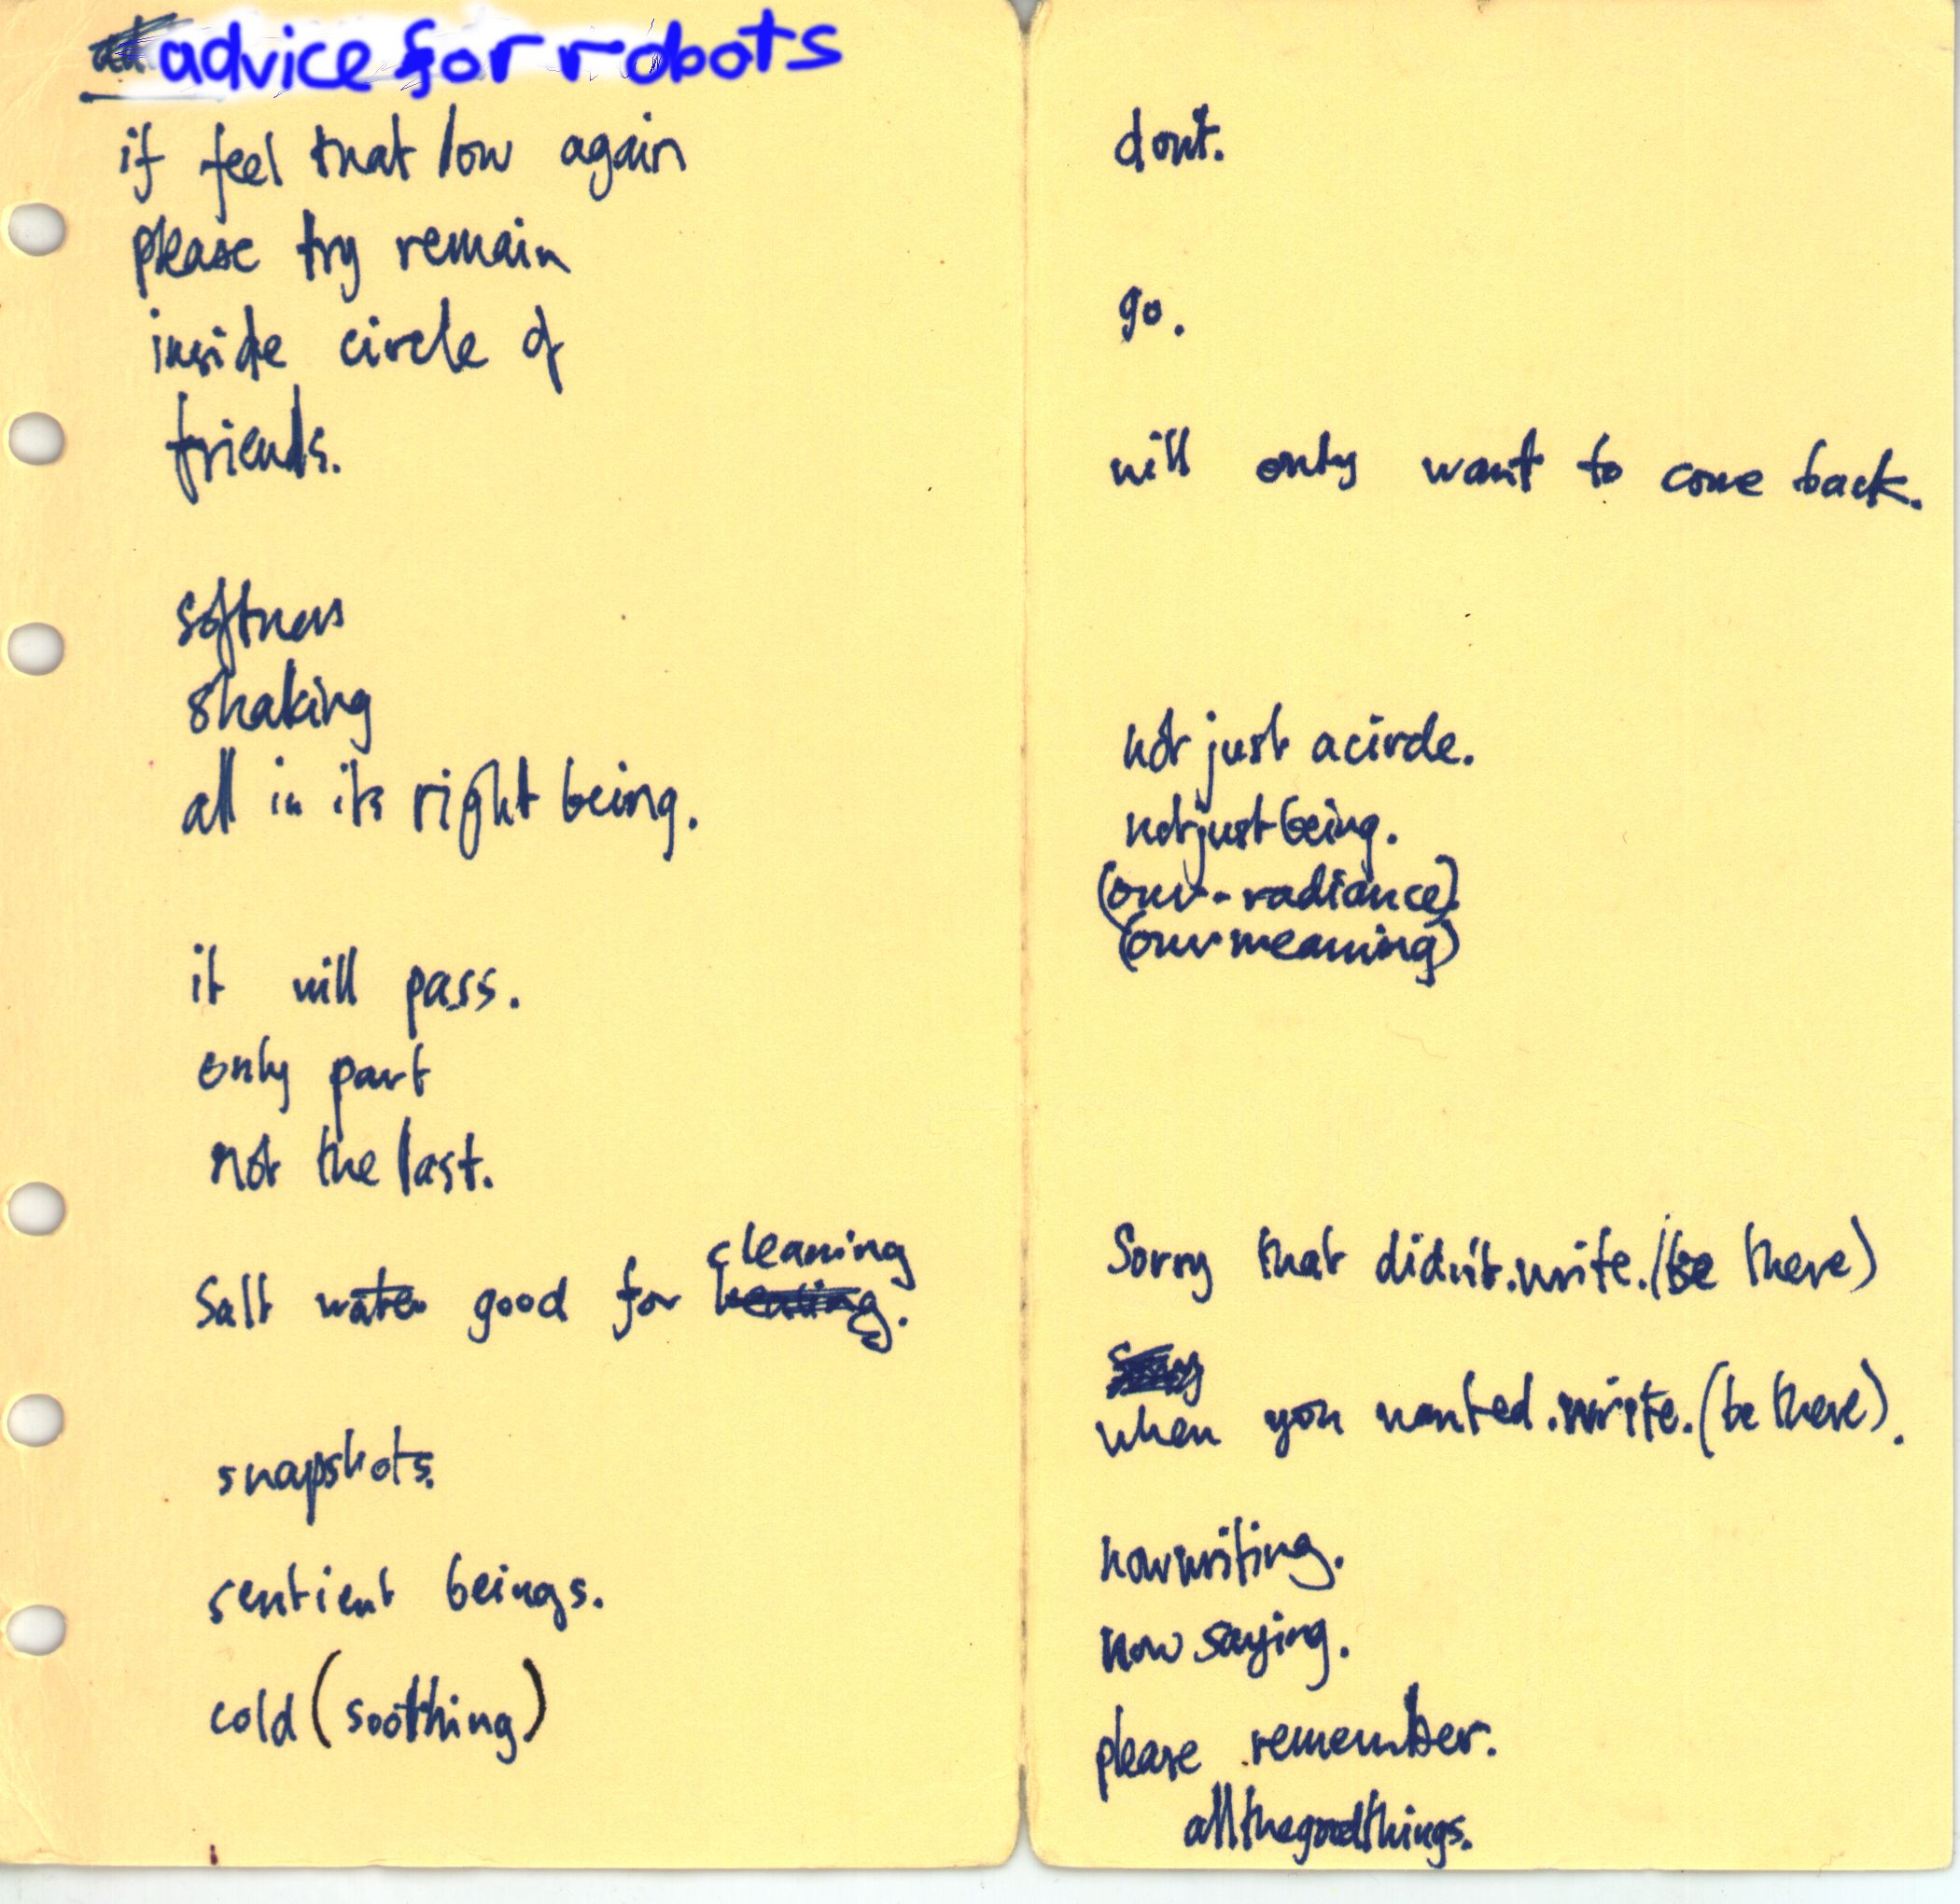 advice for robots
if feel that low again
please try remain
inside circle of
friends.
softness
shaking
all in its right being.
it will pass.
only part
not the last.
cleaning
Salt water good for healing.
snapshots.
sentient beings.
cold (soothing)
don't.
go.
will only want to come back.
not just acircle.
notjustbeing.
(our-radiance).
(our.meaning)
Sorry that didn't.write.(be there)
when you wanted.write.(be there).
nowwriting.
now saying.
please remember.
allthegoodthings.